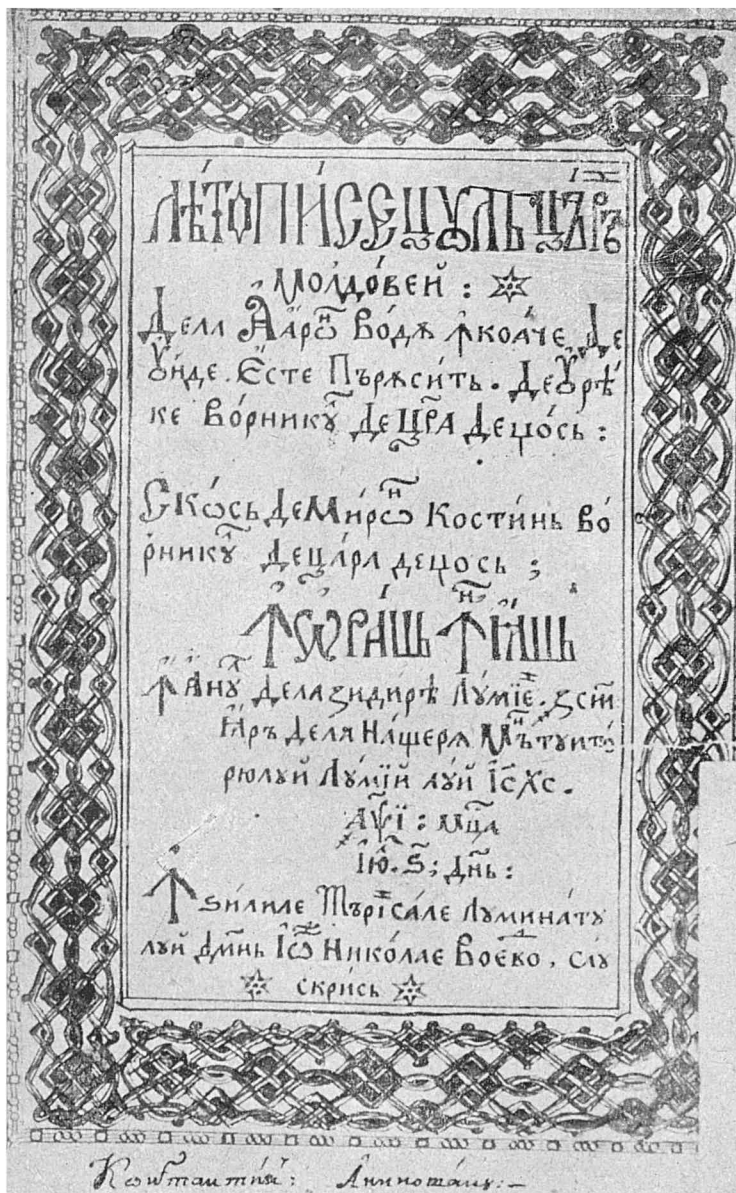 ЛѢТОПИСЕЦꙋЛЬ ЦЪРꙞЙ
Молдовей :
Дела Аарѡⷩ҇ Водѫ ꙟкоаче де
ꙋнде Есте Пърѫсить. Деꙋрѣ
ке Ворникꙋⷧ҇ Децⷭ҇ра Деџось :
Скѡсь де Мирѡⷩ҇ Костинь во
рникꙋⷧ҇ децара деџось ;
ꙞѠРАШЬ ꙞꙖШЬ
ꙞАнꙋⷧ҇ дела зидирѣ Лꙋмїе.
Ꙗръ дела нащерѫ Мънтꙋито
рюлꙋй Лꙋмїй лꙋй І҆с Хс.
аѱі : мц҃а
Їꙋ. ѕ ; днь :
Ꙟ ѕилиле Лꙋминатꙋ
лꙋй дмнь Іѡ Николае Воево, сꙋ
скрись